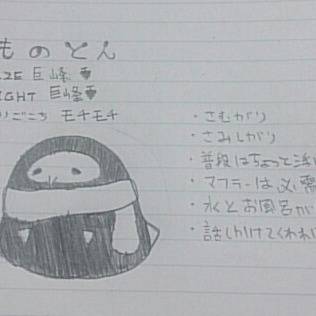 ものとん
ZE 巨峰
IGHT 巨峰
りごこち モチモチ
・さむがり
・さみしがり
・普段はちょっと
・マフラーは必需
・水とお風呂が
・話しかけてくれれば